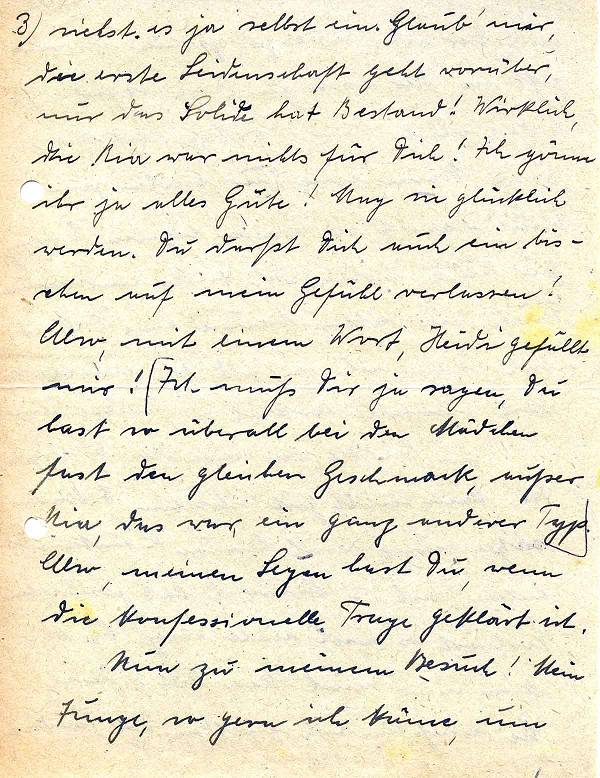 3) siehst es ja selbst ein. Glaub' mir,
die erste Leidenschaft geht vorüber,
nur das Solide hat Bestand! Wirklich,
die Ria war nichts für Dich! Ich gönne
ihr ja alles Gute! Mag sie glücklich
werden. Du darfst Dich auch ein bis-
chen auf mein Gefühl verlassen!
Also, mit einem Wort, Heidi gefällt
mir! (Ich muß Dir ja sagen, Du
hast so überall bei den Mädchen
fast den gleichen Geschmack, außer
Ria, das war ein ganz anderer Typ.)
Also, meinen Segen hast Du, wenn
die konfessionelle Frage geklärt ist.
Nun zu meinem Besuch! Mein
Junge, so gern ich käme, um